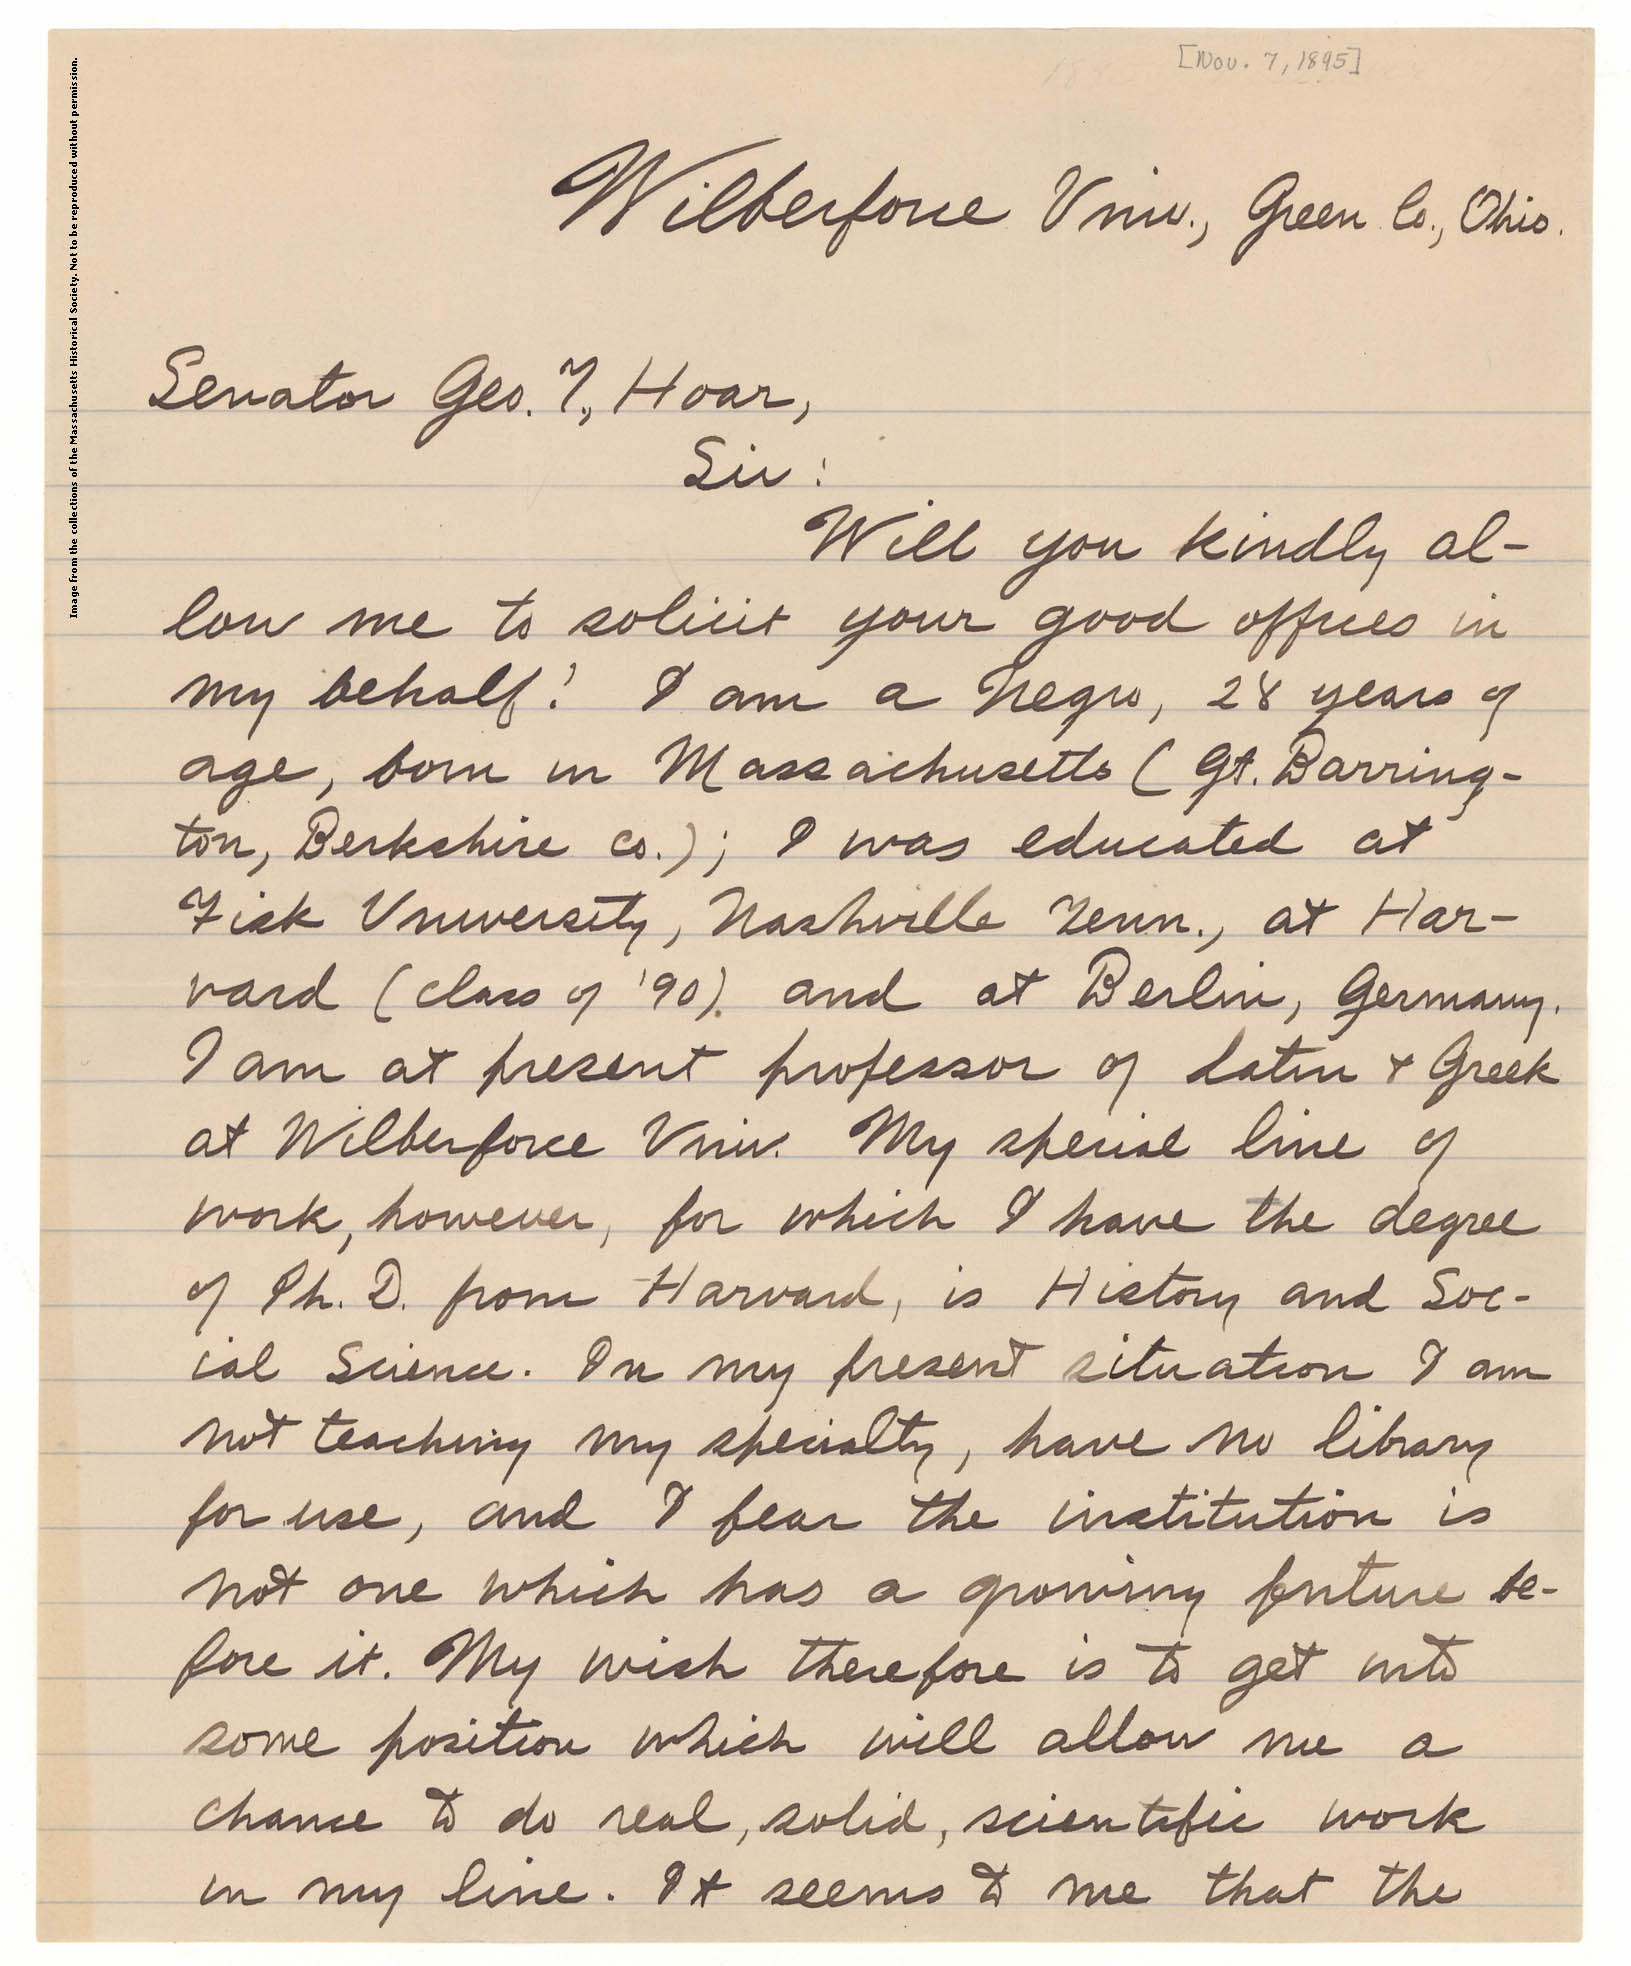 [Nov. 7, 1895]
Wilberforce Univ., Green Co., Ohio.
Senator Geo. F. Hoar,
Sir:
Will you kindly al-
low me to solicit your good offices in
my behalf? I am a Negro, 28 years of
age, born in Massachusetts (Gt. Barring-
ton, Berkshire Co.); I was educated at
Fisk University, Nashville Tenn., at Har-
vard (class of '90) and at Berlin, Germany.
I am at present professor of Latin & Greek
at Wilberforce Univ. My special line of
work, however, for which I have the degree
of Ph. D. from Harvard, is History and Soc-
ial Science. In my present situation I am
not teaching my specialty, have no library
for use, and I fear the institution is
not one which has a growing future be-
fore it. My wish therefore is to get into
some position which will allow me a
chance to do real, solid, scientific work
in my line. It seems to me that the
Image from the collections of the Massachusetts Historical Society. Not to be reproduced without permission.